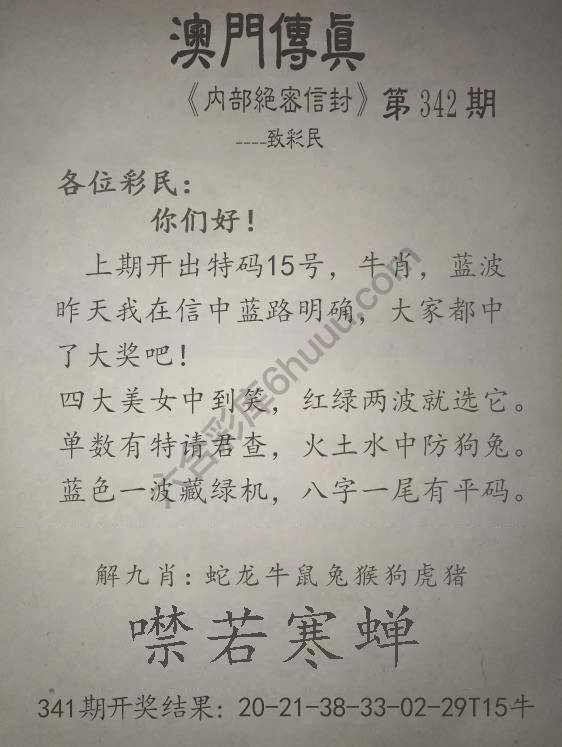 澳門傳真
《内部絕密信封》第342期
----致彩民
各位彩民：
你们好！
上期开出特码15号，牛肖，蓝波
昨天我在信中蓝路明确，大家都中
了大奖吧！
四大美女中到笑，红绿两波就选它。
单数有特请君查，火土水中防狗兔。
蓝色一波藏绿机，八字一尾有平码。
六合彩库6huuu.com
解九肖：蛇龙牛鼠兔猴狗虎猪
噤若寒蝉
341期开奖结果：20-21-38-33-02-29T15牛